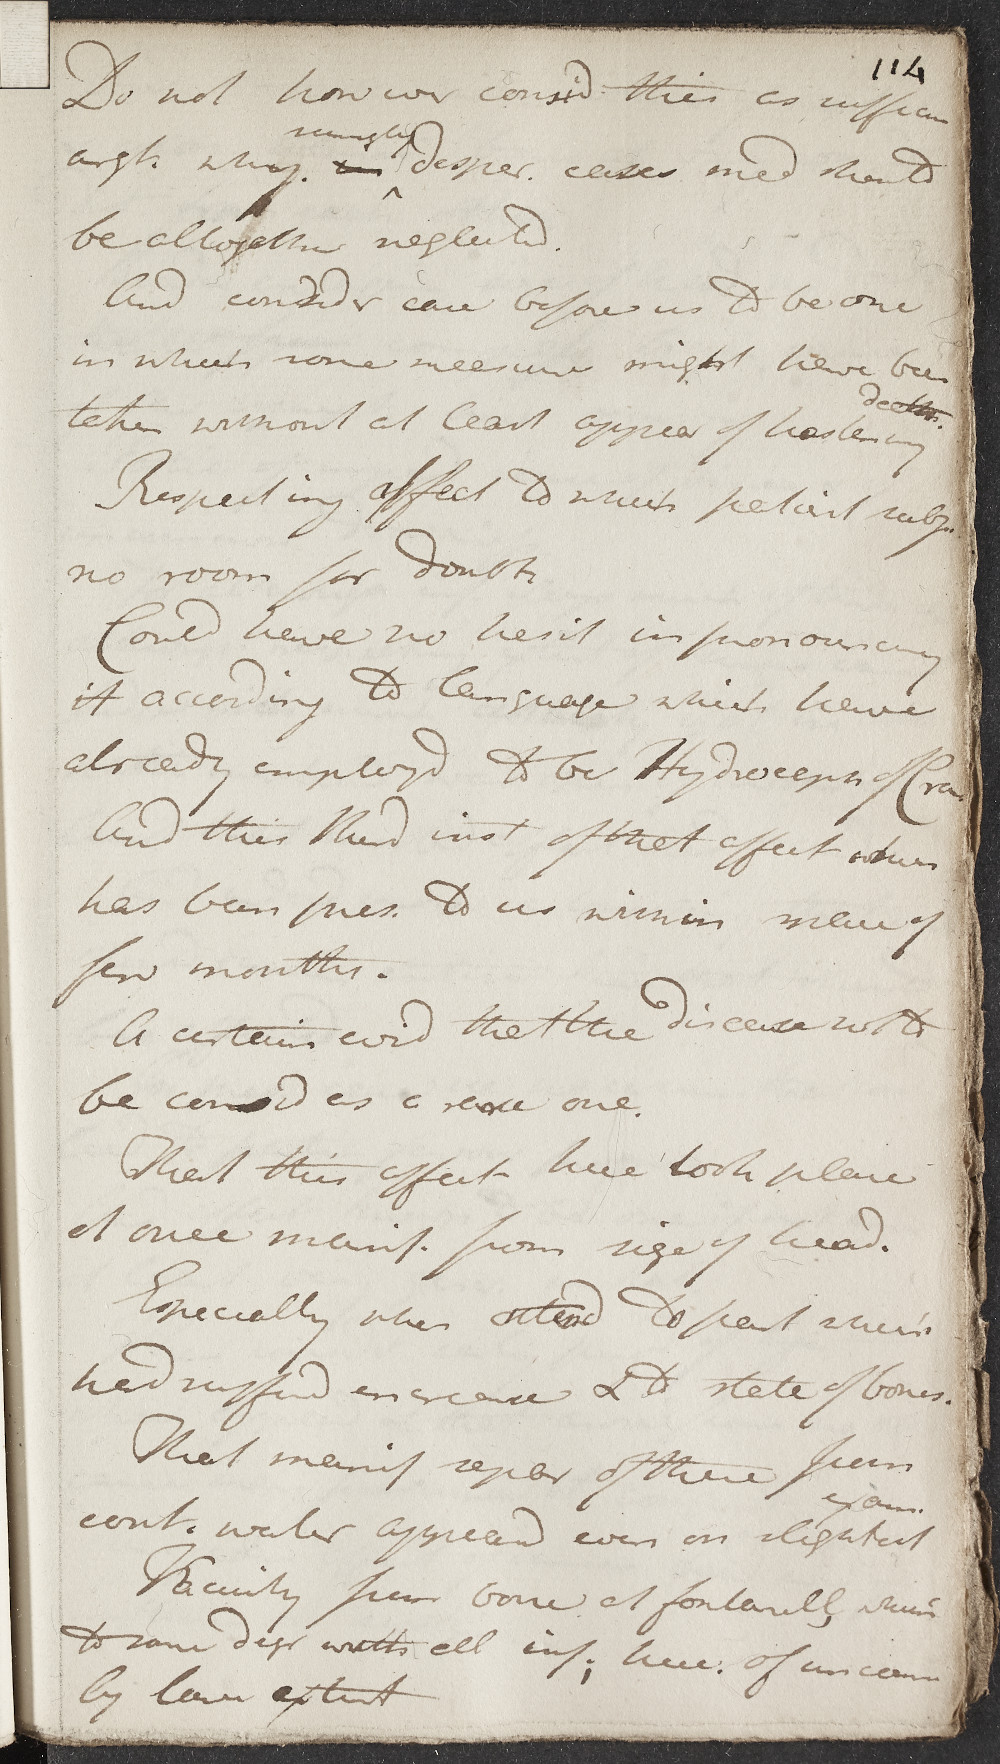 114
Do not however consid this as sufficien
argt. why. in seemgly desper. cases med should
be altogether neglected.
And consider case before us to be one
in which some measure might have been
taken without at least appear of hastening death.
Respecting affect to which patient subj.
no room for doubt
Could have no hesit in pronouncing
it according to language which have
already employd to be Hydroceph of Cran
And this third inst of that affect which
has been pres. to us within space of
few months.
A certain evid that the disease not to
be consid as a rare one.
That this affect here took place
at once manif. from size of head.
Especially when attend to part which
had sufferd increase & to state of bones.
That manif separ of these from
cont. water appeard even on slightest exam.
Vacuity from bone at fontanell, which
to some degr with all inf; here of uncomm
by large extent